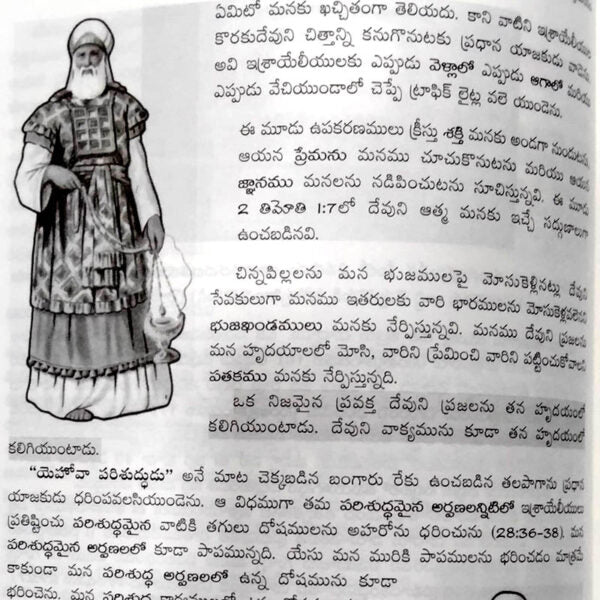 ఏమిటో మనకు ఖచ్చితంగా తెలియదు. కాని వాటిని ఇశ్రాయేలీయుల
కొరకుదేవుని చిత్తాన్ని కనుగొనుటకు ప్రధాన యాజకుడు వాడెను.
అవి ఇశ్రాయేలీయులకు ఎప్పుడు వెళ్లాలో ఎప్పుడు ఆగాలో మరియు
ఎప్పుడు వేచియుండాలో చెప్పే ట్రాఫిక్ లైట్ల వలె యుండెను.
ఈ మూడు ఉపకరణములు క్రీస్తు శక్తి మనకు అండగా నుండుటను,
ఆయన ప్రేమను మనము చూచుకొనుటను మరియు ఆయన
జ్ఞానము మనలను నడిపించుటను సూచిస్తున్నవి. ఈ మూడు
2 తిమోతి 1:7లో దేవుని ఆత్మ మనకు ఇచ్చే సద్గుణాలుగా
ఉంచబడినవి.
చిన్నపిల్లలను మన భుజములపై మోసుకెళ్లినట్లు దేవుని
సేవకులుగా మనము ఇతరులకు వారి భారములను మోసుకెళ్లవలెనని
భుజఖండములు మనకు నేర్పిస్తున్నవి. మనము దేవుని ప్రజలను
మన హృదయాలలో మోసి, వారిని ప్రేమించి వారిని పట్టించుకోవాలని
పతకము మనకు నేర్పిస్తున్నది.
ఒక నిజమైన ప్రవక్త దేవుని ప్రజలను తన హృదయంలో
కలిగియుంటాడు. దేవుని వాక్యమును కూడా తన హృదయంలో
కలిగియుంటాడు.
“యెహోవా పరిశుద్ధుడు” అనే మాట చెక్కబడిన బంగారు రేకు ఉంచబడిన తలపాగాను ప్రధాన
యాజకుడు ధరింపవలసియుండెను. ఆ విధముగా తమ పరిశుద్ధమైన అర్పణలన్నిటిలో ఇశ్రాయేలీయులు
ప్రతిష్టించు పరిశుద్ధమైన వాటికి తగులు దోషములను అహరోను ధరించును (28:36-38). మన
పరిశుద్ధమైన అర్పణలలో కూడా పాపమున్నది. యేసు మన మురికి పాపములను భరించడం మాత్రమే
కాకుండా మన పరిశుద్ధ అర్పణలలో ఉన్న దోషమును కూడా
భరించెను. మన